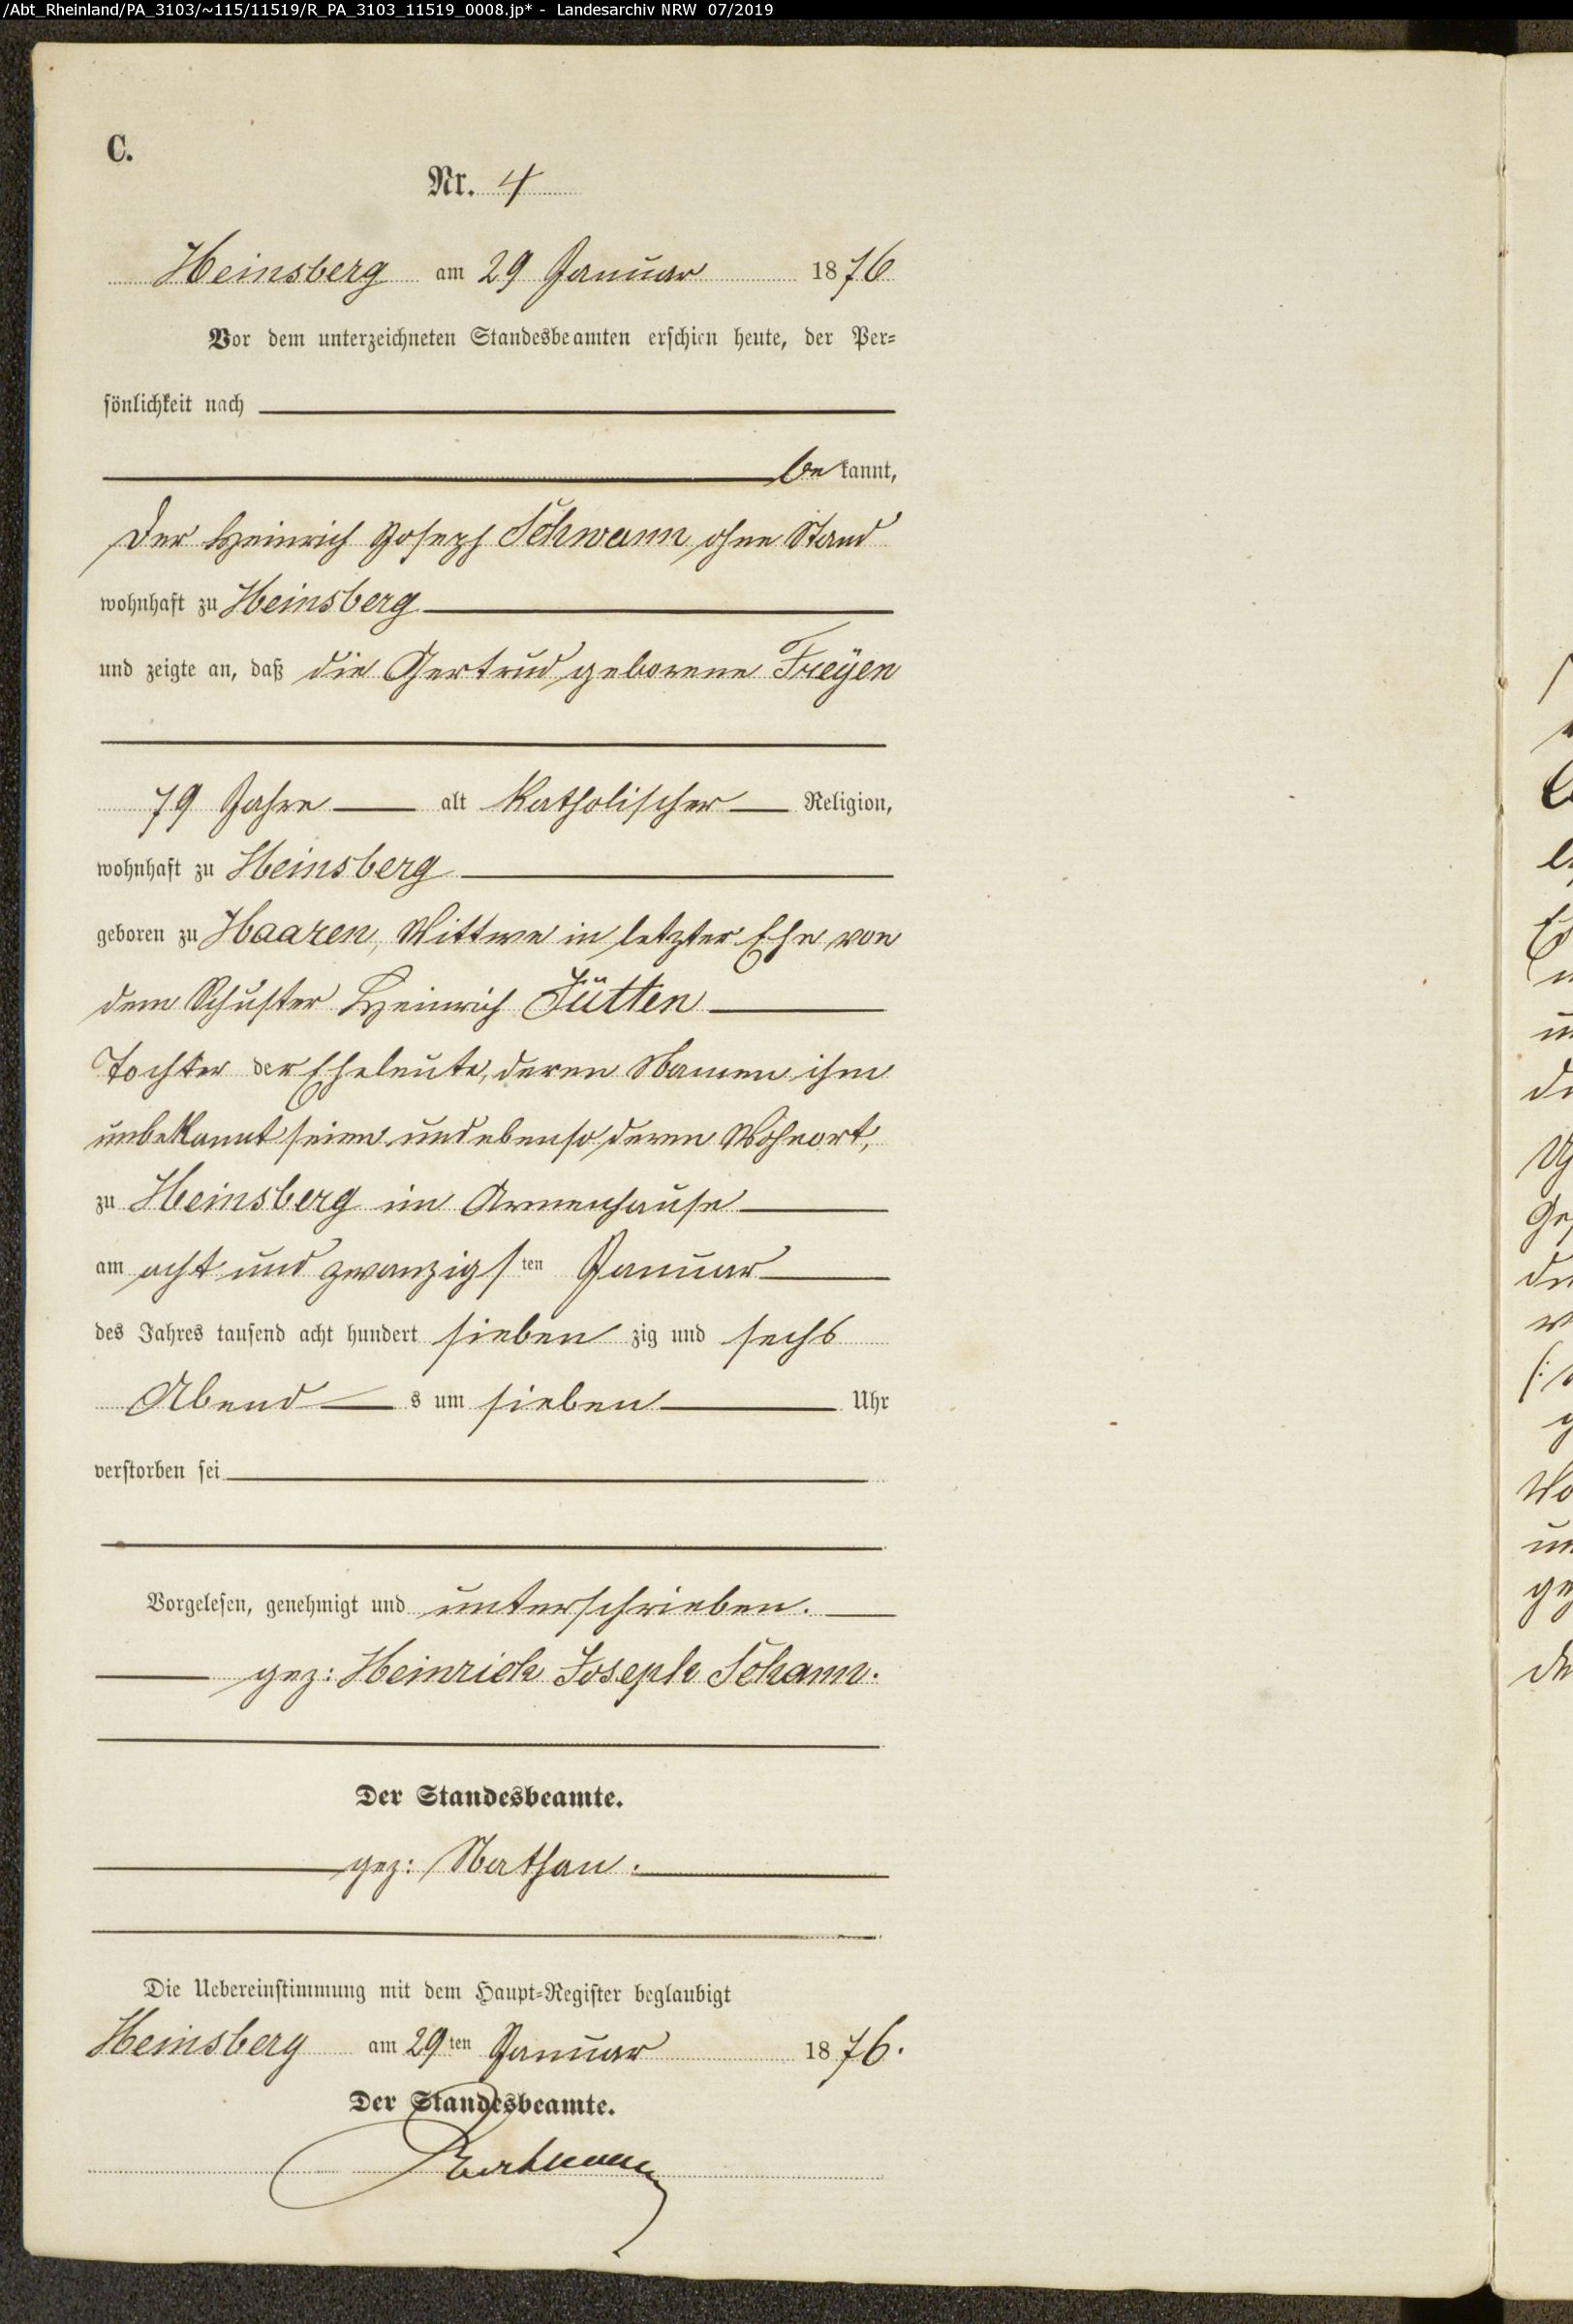 /Abt_Rheinland/PA_3103/~115/11519/R_PA_3103_11519_0008.jp* - Landesarchiv NRW 07/2019
C.
Nr. 4
Heinsberg am 29 Januar 1876
Vor dem unterzeichneten Standesbeamten erschien heute, der Per=
sönlichkeit nach
bekannt,
der Heinrich Joseph Schwann ohne Stand
wohnhaft zu Heinsberg
und zeigte an, daß die Gertrud geborene Freÿen
79 Jahre alt katholischer Religion,
wohnhaft zu Heinsberg
geboren zu Haaren, Wittwe in letzter Ehe von
dem Schuster Heinrich Jütten
Tochter der Eheleute, deren Namen ihm
unbekannt seien und ebenso deren Wohnort,
zu Heinsberg im Armenhause
am acht und zwanzigsten Januar
des Jahres tausend acht hundert siebenzig und sechs
Abends um sieben Uhr
verstorben sei
Vorgelesen, genehmigt und unterschrieben.
gez: Heinrich Joseph Schann.
Der Standesbeamte.
gez: Nathan.
Die Uebereinstimmung mit dem Haupt=Register beglaubigt
Heinsberg am 29ten Januar 1876.
Der Standesbeamte.